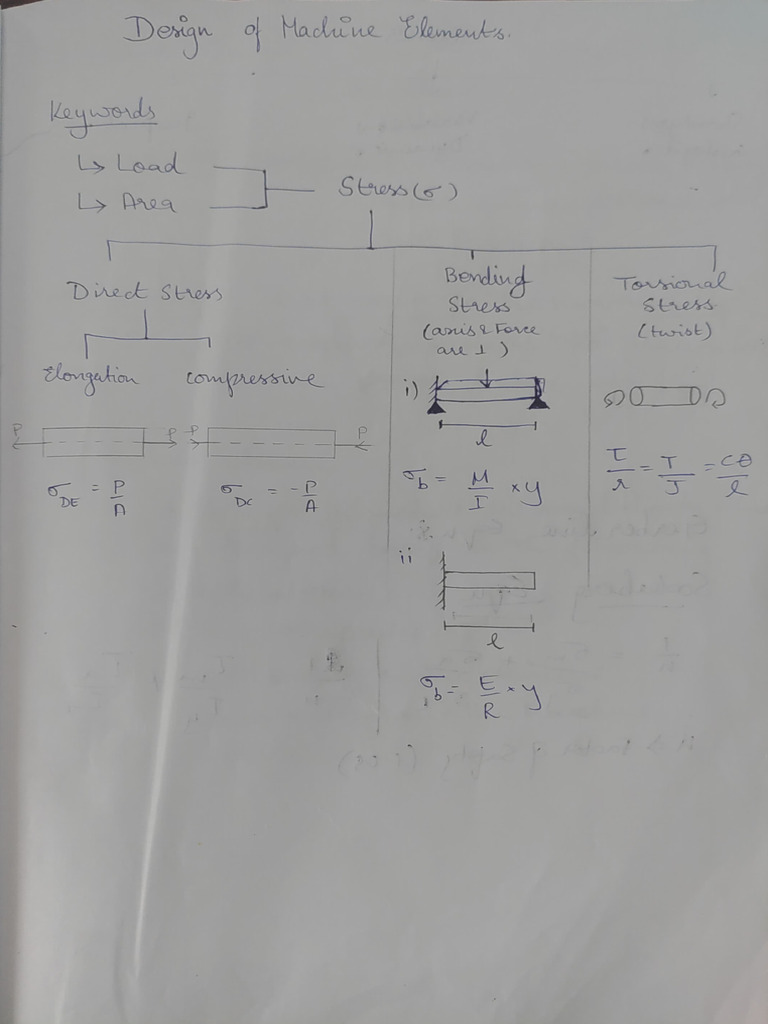 Design of Machine Elements.
Keywords
↳ Load
↳ Area
Stress (σ)
Direct Stress
Elongation
compressive
P P
-P P
σ_DE = P/A
σ_DC = -P/A
Bending
Stress
(axis & Force
are ⊥)
i)
l
σ_b = M/I × y
ii
l
σ_b = E/R × y
Torsional
Stress
(twist)
τ/r = T/J = Cθ/l